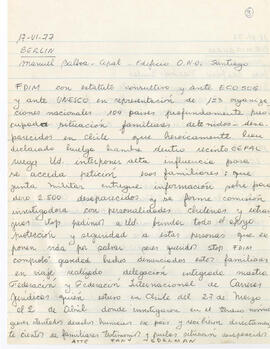 17-VI-77
BERLIN
Manuel Balboa - Cepal - Edificio O.N.U. Santiago
FDIM con estatuto consultivo y ante ECOSOC
y ante UNESCO en representación de 123 organiza
ciones nacionales 100 países profundamente preo
cupada situación familiares detenidos desa
parecidos en Chile que heroicamente han
declarado huelga hambre dentro recinto CEPAL
ruego Ud. interponer alta influencia para
se acceda petición 100 familiares: que
junta militar entregue información sobre para
dero 2.500 desaparecidos y se forme comisión
investigadora con personalidades chilenas y
stop pedimos a Ud. brinde todo el apoyo
protección y seguridad a estas personas que se
ponen vida por salvar seres queridos stop FDIM
comprobó gandes hechos denunciados estos familiares
en viaje realizado delegación integrada nuestra
Federación y Federación Internacional de
Jurídicas quien estuvo en Chile del 27 de Marzo
al 2 de Abril donde investigaron en el
derechos humanos ese país y recibieron directamente
de cientos de familiares testimonios y pruebas
ATTE FANY EDELMAN